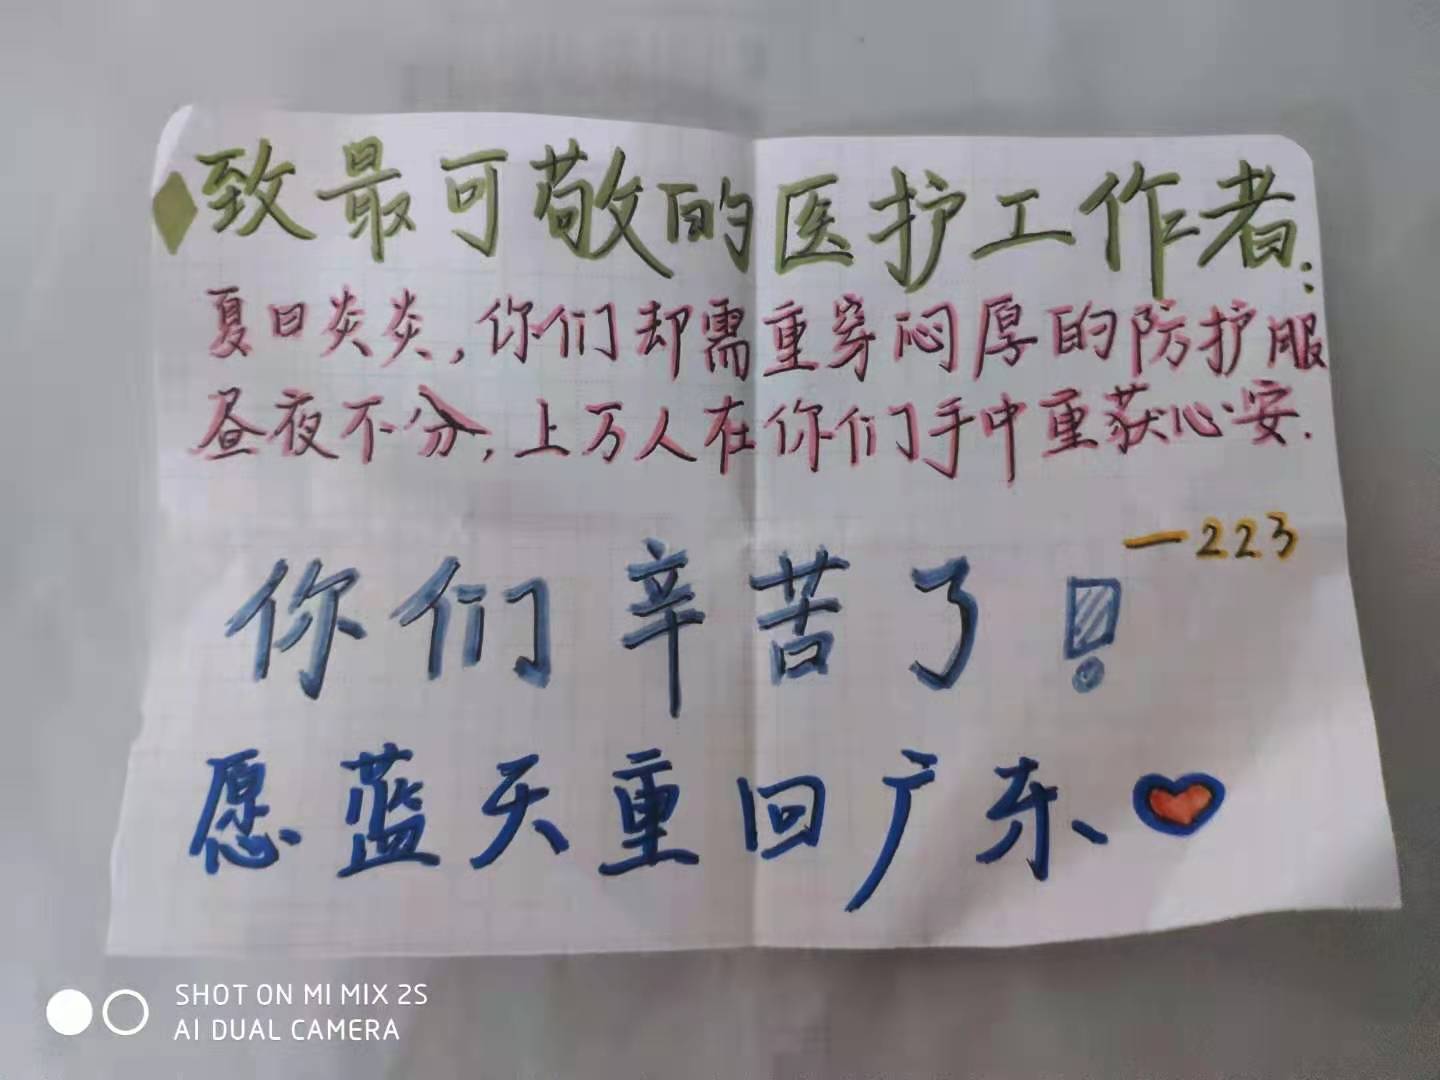 致最可敬的医护工作者:
夏日炎炎,你们却需重穿闷厚的防护服
昼夜不分,上万人在你们手中重获心安.
—223
你们辛苦了!
愿蓝天重回广东
SHOT ON MI MIX 2S
AI DUAL CAMERA